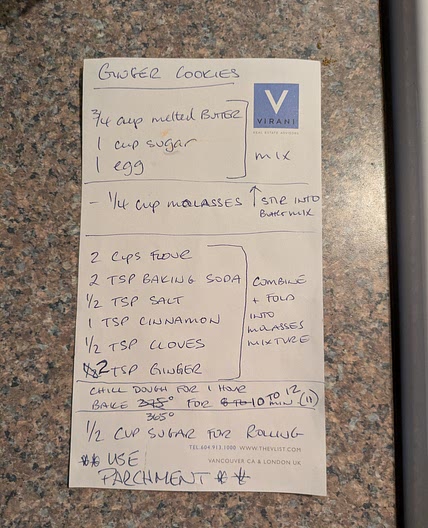 GINGER COOKIES
V
VIRANI
REAL ESTATE ADVISORS
3/4 cup melted BUTTER
1 cup sugar
1 egg
mix
- 1/4 cup MOLASSES ↑ STIR INTO
BUTTER MIX
2 CUPS FLOUR
2 TSP BAKING SODA
1/2 TSP SALT
1 TSP CINNAMON
1/2 TSP CLOVES
2 TSP GINGER
COMBINE
+ FOLD
INTO
MOLASSES
MIXTURE
CHILL DOUGH FOR 1 HOUR
BAKE 375° FOR 8 TO 10 TO 12 MIN (11)
365°
1/2 CUP SUGAR FOR ROLLING
TEL 604.913.1000 WWW.THEVLIST.COM
VANCOUVER CA & LONDON UK
** USE
PARCHMENT **